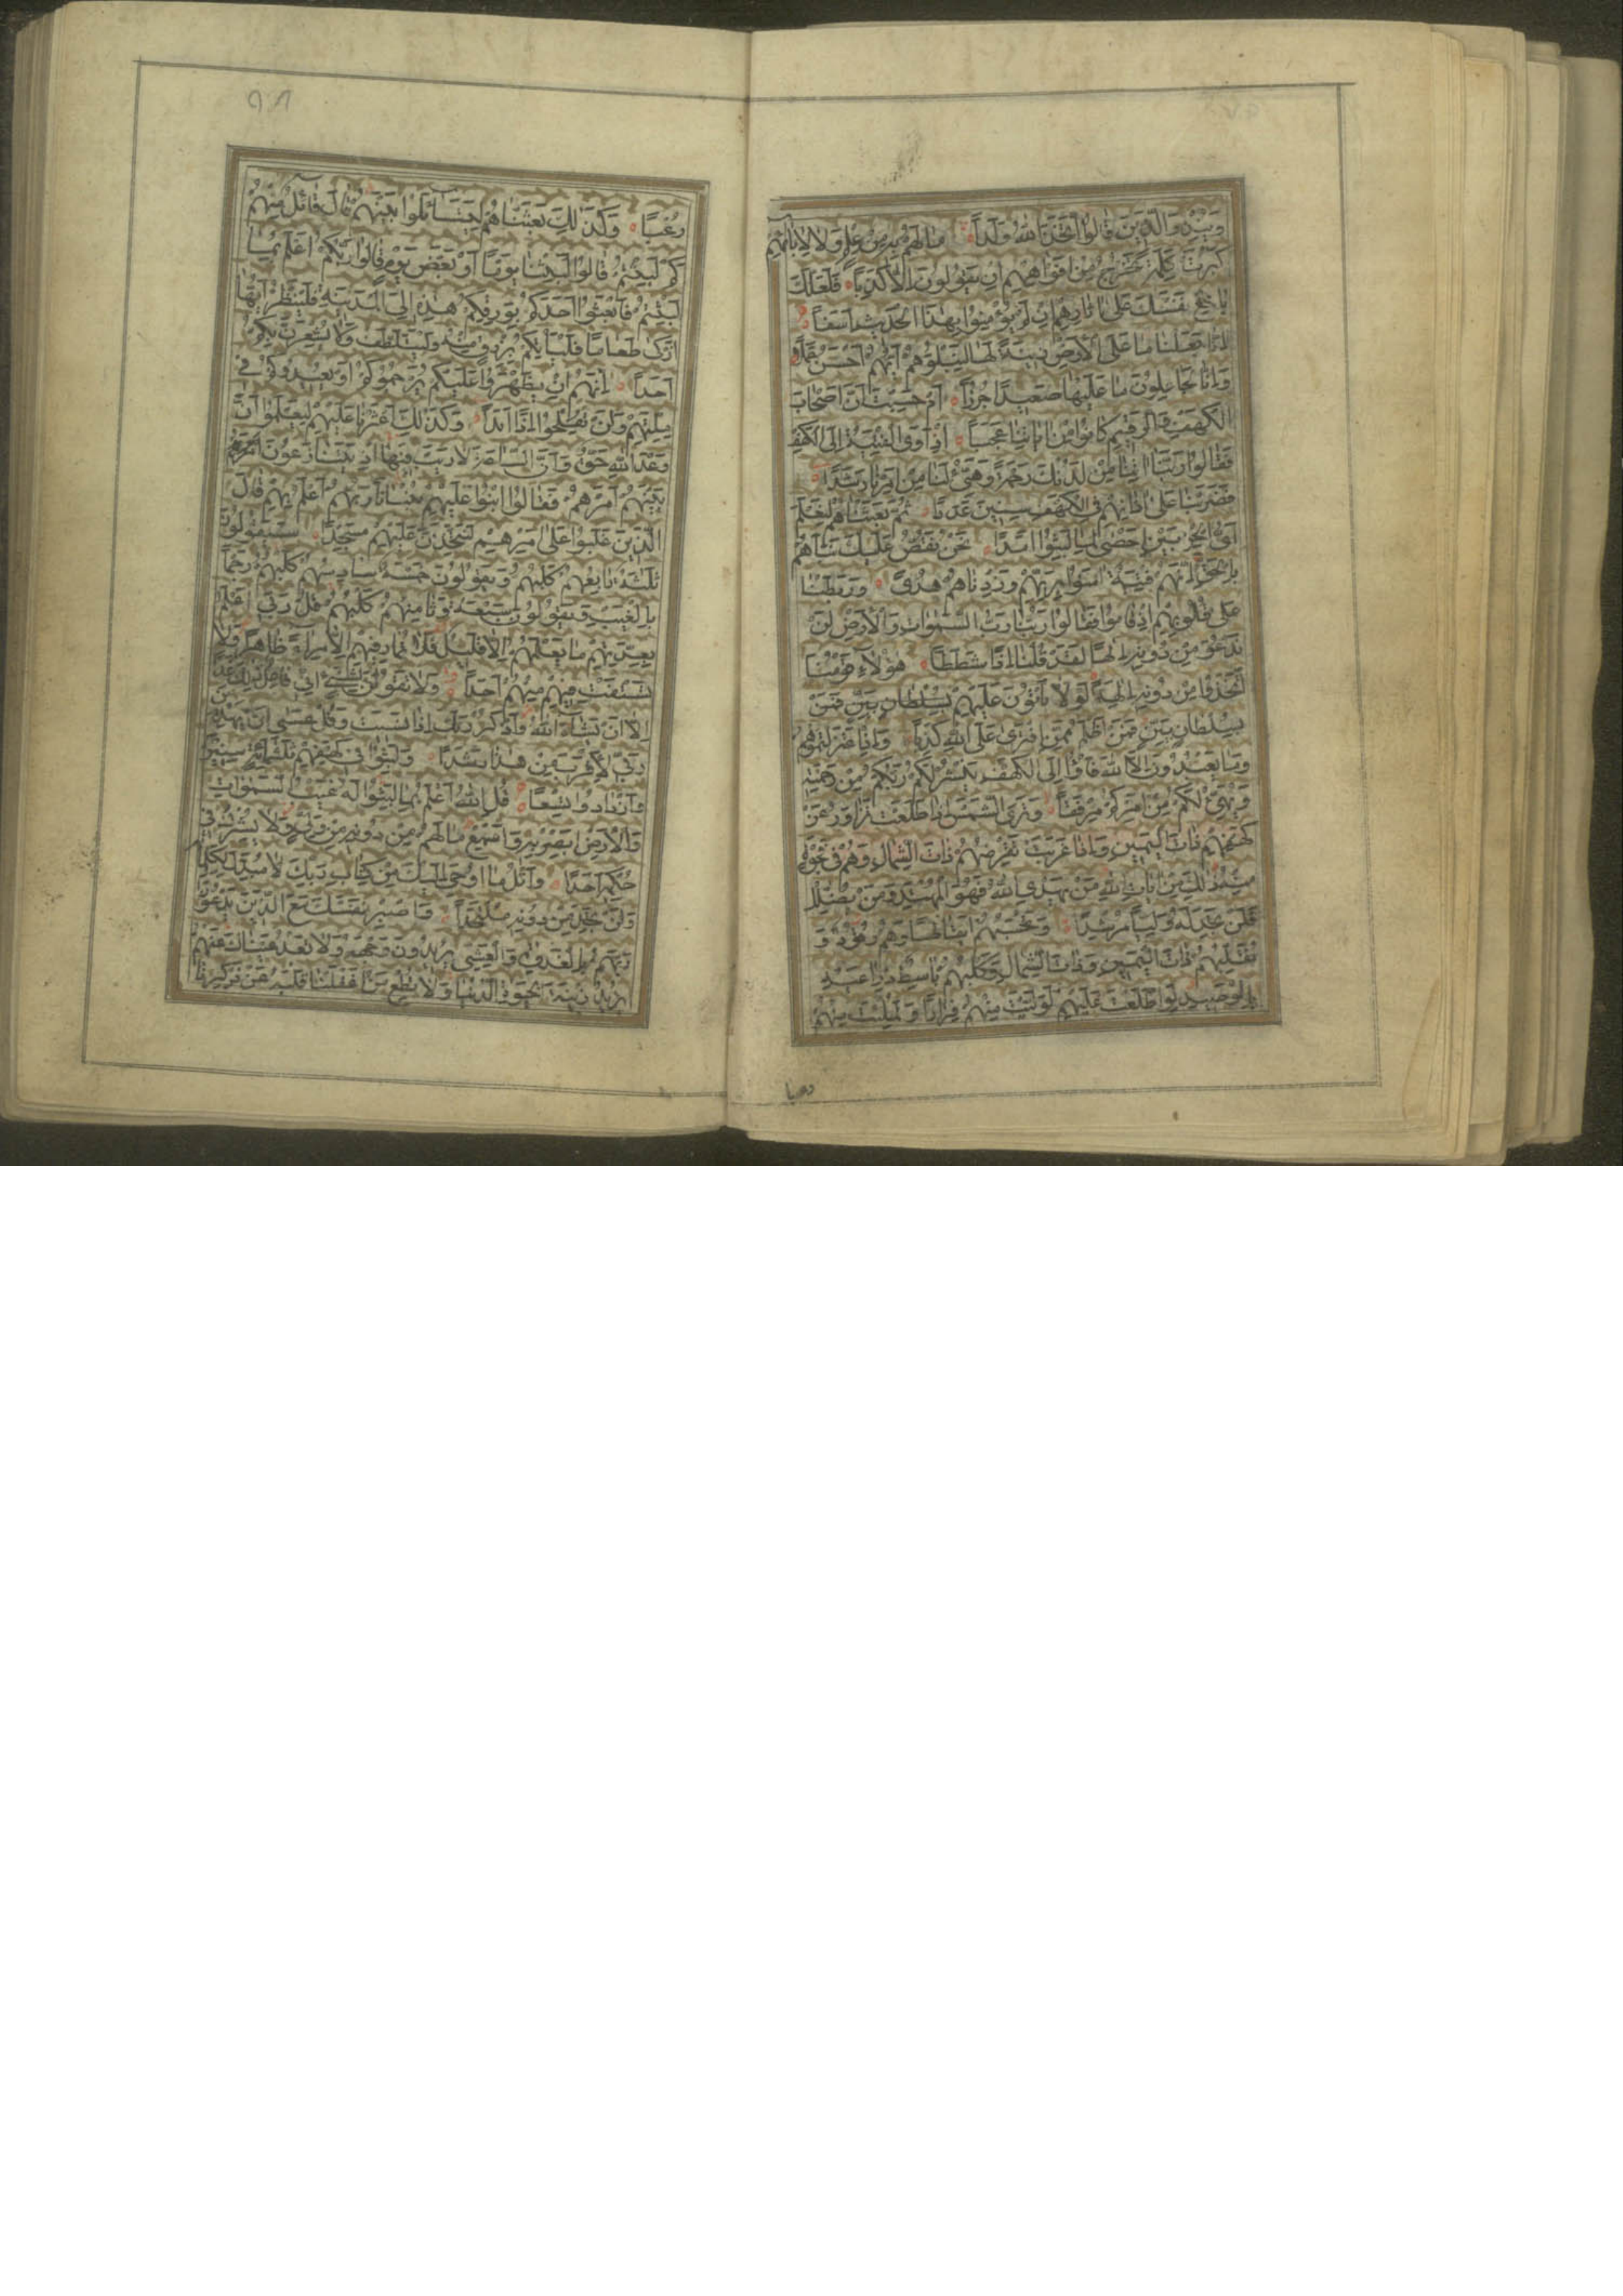 وَيُنْذِرَ الَّذِينَ قَالُوا اتَّخَذَ اللهُ وَلَدًا مَا لَهُمْ بِهِ مِنْ عِلْمٍ وَلَا لِآبَائِهِمْ
كَبُرَتْ كَلِمَةً تَخْرُجُ مِنْ أَفْوَاهِهِمْ إِنْ يَقُولُونَ إِلَّا كَذِبًا فَلَعَلَّكَ
بَاخِعٌ نَفْسَكَ عَلَى آثَارِهِمْ إِنْ لَمْ يُؤْمِنُوا بِهَذَا الْحَدِيثِ أَسَفًا
إِنَّا جَعَلْنَا مَا عَلَى الْأَرْضِ زِينَةً لَهَا لِنَبْلُوَهُمْ أَيُّهُمْ أَحْسَنُ عَمَلًا
وَإِنَّا لَجَاعِلُونَ مَا عَلَيْهَا صَعِيدًا جُرُزًا أَمْ حَسِبْتَ أَنَّ أَصْحَابَ
الْكَهْفِ وَالرَّقِيمِ كَانُوا مِنْ آيَاتِنَا عَجَبًا إِذْ أَوَى الْفِتْيَةُ إِلَى الْكَهْفِ
فَقَالُوا رَبَّنَا آتِنَا مِنْ لَدُنْكَ رَحْمَةً وَهَيِّئْ لَنَا مِنْ أَمْرِنَا رَشَدًا
فَضَرَبْنَا عَلَى آذَانِهِمْ فِي الْكَهْفِ سِنِينَ عَدَدًا ثُمَّ بَعَثْنَاهُمْ لِنَعْلَمَ
أَيُّ الْحِزْبَيْنِ أَحْصَى لِمَا لَبِثُوا أَمَدًا نَحْنُ نَقُصُّ عَلَيْكَ نَبَأَهُمْ
بِالْحَقِّ إِنَّهُمْ فِتْيَةٌ آمَنُوا بِرَبِّهِمْ وَزِدْنَاهُمْ هُدًى وَرَبَطْنَا
عَلَى قُلُوبِهِمْ إِذْ قَامُوا فَقَالُوا رَبُّنَا رَبُّ السَّمٰوَاتِ وَالْأَرْضِ لَنْ
نَدْعُوَ مِنْ دُونِهِ إِلَهًا لَقَدْ قُلْنَا إِذًا شَطَطًا هٰؤُلَاءِ قَوْمُنَا
اتَّخَذُوا مِنْ دُونِهِ آلِهَةً لَوْلَا يَأْتُونَ عَلَيْهِمْ بِسُلْطَانٍ بَيِّنٍ فَمَنْ
بِسُلْطَانٍ بَيِّنٍ فَمَنْ أَظْلَمُ مِمَّنِ افْتَرَى عَلَى اللهِ كَذِبًا وَإِذِ اعْتَزَلْتُمُوهُمْ
وَمَا يَعْبُدُونَ إِلَّا اللهَ فَأْوُوا إِلَى الْكَهْفِ يَنْشُرْ لَكُمْ رَبُّكُمْ مِنْ رَحْمَتِهِ
وَيُهَيِّئْ لَكُمْ مِنْ أَمْرِكُمْ مِرْفَقًا وَتَرَى الشَّمْسَ إِذَا طَلَعَتْ تَزَاوَرُ عَنْ
كَهْفِهِمْ ذَاتَ الْيَمِينِ وَإِذَا غَرَبَتْ تَقْرِضُهُمْ ذَاتَ الشِّمَالِ وَهُمْ فِي فَجْوَةٍ
مِنْهُ ذٰلِكَ مِنْ آيَاتِ اللهِ مَنْ يَهْدِي اللهُ فَهُوَ الْمُهْتَدِ وَمَنْ يُضْلِلْ
فَلَنْ تَجِدَ لَهُ وَلِيًّا مُرْشِدًا وَتَحْسَبُهُمْ أَيْقَاظًا وَهُمْ رُقُودٌ وَ
نُقَلِّبُهُمْ ذَاتَ الْيَمِينِ وَذَاتَ الشِّمَالِ وَكَلْبُهُمْ بَاسِطٌ ذِرَاعَيْهِ
بِالْوَصِيدِ لَوِ اطَّلَعْتَ عَلَيْهِمْ لَوَلَّيْتَ مِنْهُمْ فِرَارًا وَلَمُلِئْتَ مِنْهُمْ
رُعْبًا وَكَذٰلِكَ بَعَثْنَاهُمْ لِيَتَسَاءَلُوا بَيْنَهُمْ قَالَ قَائِلٌ مِنْهُمْ
كَمْ لَبِثْتُمْ قَالُوا لَبِثْنَا يَوْمًا أَوْ بَعْضَ يَوْمٍ قَالُوا رَبُّكُمْ أَعْلَمُ بِمَا
لَبِثْتُمْ فَابْعَثُوا أَحَدَكُمْ بِوَرِقِكُمْ هٰذِهِ إِلَى الْمَدِينَةِ فَلْيَنْظُرْ أَيُّهَا
أَزْكَى طَعَامًا فَلْيَأْتِكُمْ بِرِزْقٍ مِنْهُ وَلْيَتَلَطَّفْ وَلَا يُشْعِرَنَّ بِكُمْ
أَحَدًا إِنَّهُمْ إِنْ يَظْهَرُوا عَلَيْكُمْ يَرْجُمُوكُمْ أَوْ يُعِيدُوكُمْ فِي
مِلَّتِهِمْ وَلَنْ تُفْلِحُوا إِذًا أَبَدًا وَكَذٰلِكَ أَعْثَرْنَا عَلَيْهِمْ لِيَعْلَمُوا أَنَّ
وَعْدَ اللهِ حَقٌّ وَأَنَّ السَّاعَةَ لَا رَيْبَ فِيهَا إِذْ يَتَنَازَعُونَ أَمْرَهُمْ
بَيْنَهُمْ أَمْرَهُمْ فَقَالُوا ابْنُوا عَلَيْهِمْ بُنْيَانًا رَبُّهُمْ أَعْلَمُ بِهِمْ قَالَ
الَّذِينَ غَلَبُوا عَلَى أَمْرِهِمْ لَنَتَّخِذَنَّ عَلَيْهِمْ مَسْجِدًا سَيَقُولُونَ
ثَلٰثَةٌ رَابِعُهُمْ كَلْبُهُمْ وَيَقُولُونَ خَمْسَةٌ سَادِسُهُمْ كَلْبُهُمْ رَجْمًا
بِالْغَيْبِ وَيَقُولُونَ سَبْعَةٌ وَثَامِنُهُمْ كَلْبُهُمْ قُلْ رَبِّي أَعْلَمُ
بِعِدَّتِهِمْ مَا يَعْلَمُهُمْ إِلَّا قَلِيلٌ فَلَا تُمَارِ فِيهِمْ إِلَّا مِرَاءً ظَاهِرًا وَلَا
تَسْتَفْتِ فِيهِمْ مِنْهُمْ أَحَدًا وَلَا تَقُولَنَّ لِشَيْءٍ إِنِّي فَاعِلٌ ذٰلِكَ غَدًا
إِلَّا أَنْ يَشَاءَ اللهُ وَاذْكُرْ رَبَّكَ إِذَا نَسِيتَ وَقُلْ عَسَى أَنْ يَهْدِيَنِ
رَبِّي لِأَقْرَبَ مِنْ هٰذَا رَشَدًا وَلَبِثُوا فِي كَهْفِهِمْ ثَلٰثَمِائَةٍ سِنِينَ
وَازْدَادُوا تِسْعًا قُلِ اللهُ أَعْلَمُ بِمَا لَبِثُوا لَهُ غَيْبُ السَّمٰوَاتِ
وَالْأَرْضِ أَبْصِرْ بِهِ وَأَسْمِعْ مَا لَهُمْ مِنْ دُونِهِ مِنْ وَلِيٍّ وَلَا يُشْرِكُ فِي
حُكْمِهِ أَحَدًا وَاتْلُ مَا أُوحِيَ إِلَيْكَ مِنْ كِتَابِ رَبِّكَ لَا مُبَدِّلَ لِكَلِمَاتِهِ
وَلَنْ تَجِدَ مِنْ دُونِهِ مُلْتَحَدًا وَاصْبِرْ نَفْسَكَ مَعَ الَّذِينَ يَدْعُونَ
رَبَّهُمْ بِالْغَدٰوةِ وَالْعَشِيِّ يُرِيدُونَ وَجْهَهُ وَلَا تَعْدُ عَيْنَاكَ عَنْهُمْ
تُرِيدُ زِينَةَ الْحَيٰوةِ الدُّنْيَا وَلَا تُطِعْ مَنْ أَغْفَلْنَا قَلْبَهُ عَنْ ذِكْرِنَا